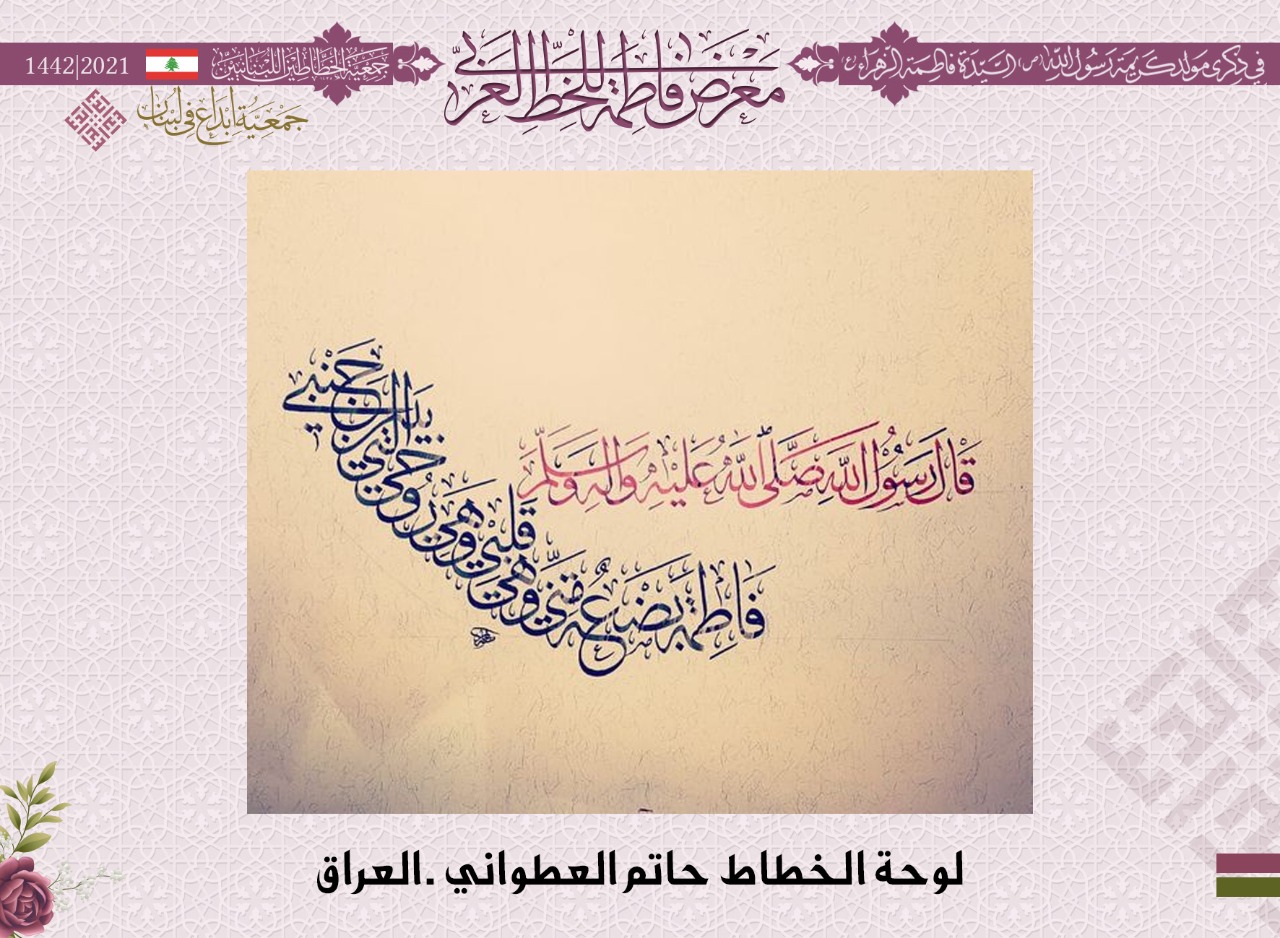 في ذكرى مولد كريمة رسول الله (ص) السيدة فاطمة الزهراء (ع)
معرض فاطمة للخط العربي
جمعية الخطاطين اللبنانيين
1442|2021
جمعية إبداع في لبنان
قَالَ رَسُولُ اللهِ صَلَّى اللهُ عَلَيْهِ وَآلِهِ وَسَلَّمَ
فَاطِمَةُ بَضْعَةٌ مِّنِّي وَهِيَ
قَلْبِي وَهِيَ رُوحِي الَّتِي بَيْنَ جَنْبَيَّ
لوحة الخطاط حاتم العطواني .العراق